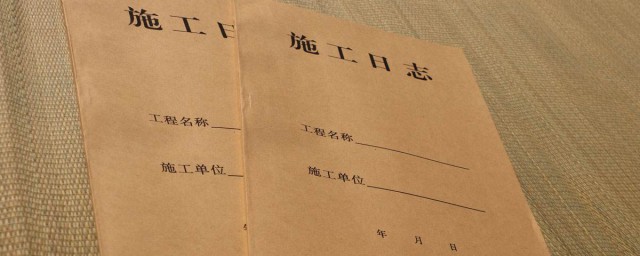 施工日
工程名称
施工单位
施工日志
工程名称
施工单位
年 月 日